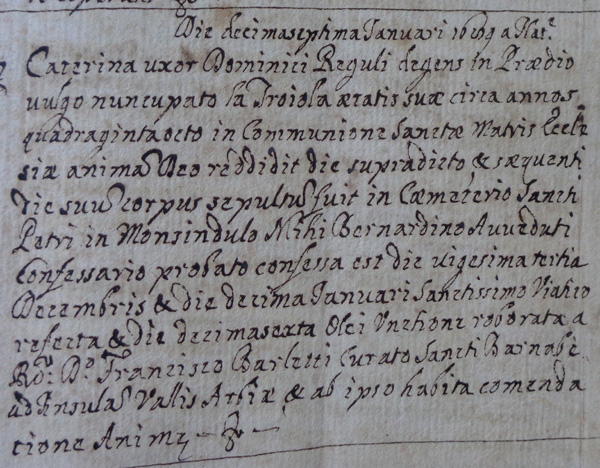 Die decimaseptima Januari 1689 a Nat.e
Caterina uxor Dominici Reguli degens in Prædio
vulgo nuncupato la Troiola ætatis suæ circa annos
quadraginta octo in Communione Sanctæ Matris Eccle
siæ anima Deo reddidit die supradicto, & sæquenti
die suu corpus sepultus fuit in Cæmeterio Sancti
Petri in Monsindulo Mihi Bernardino Avveduti
Confessario probato confessa est die vigesima tertia
Decembris & die decima Januari Sanctissimo Viatico
refecta & die decimasexta Olei Unctione roborata a
R.do D.o Francisco Barletti Curato Sancti Barnabe
ad Insula Vallis Arbiæ & ab ipso habita comenda
tione Animę